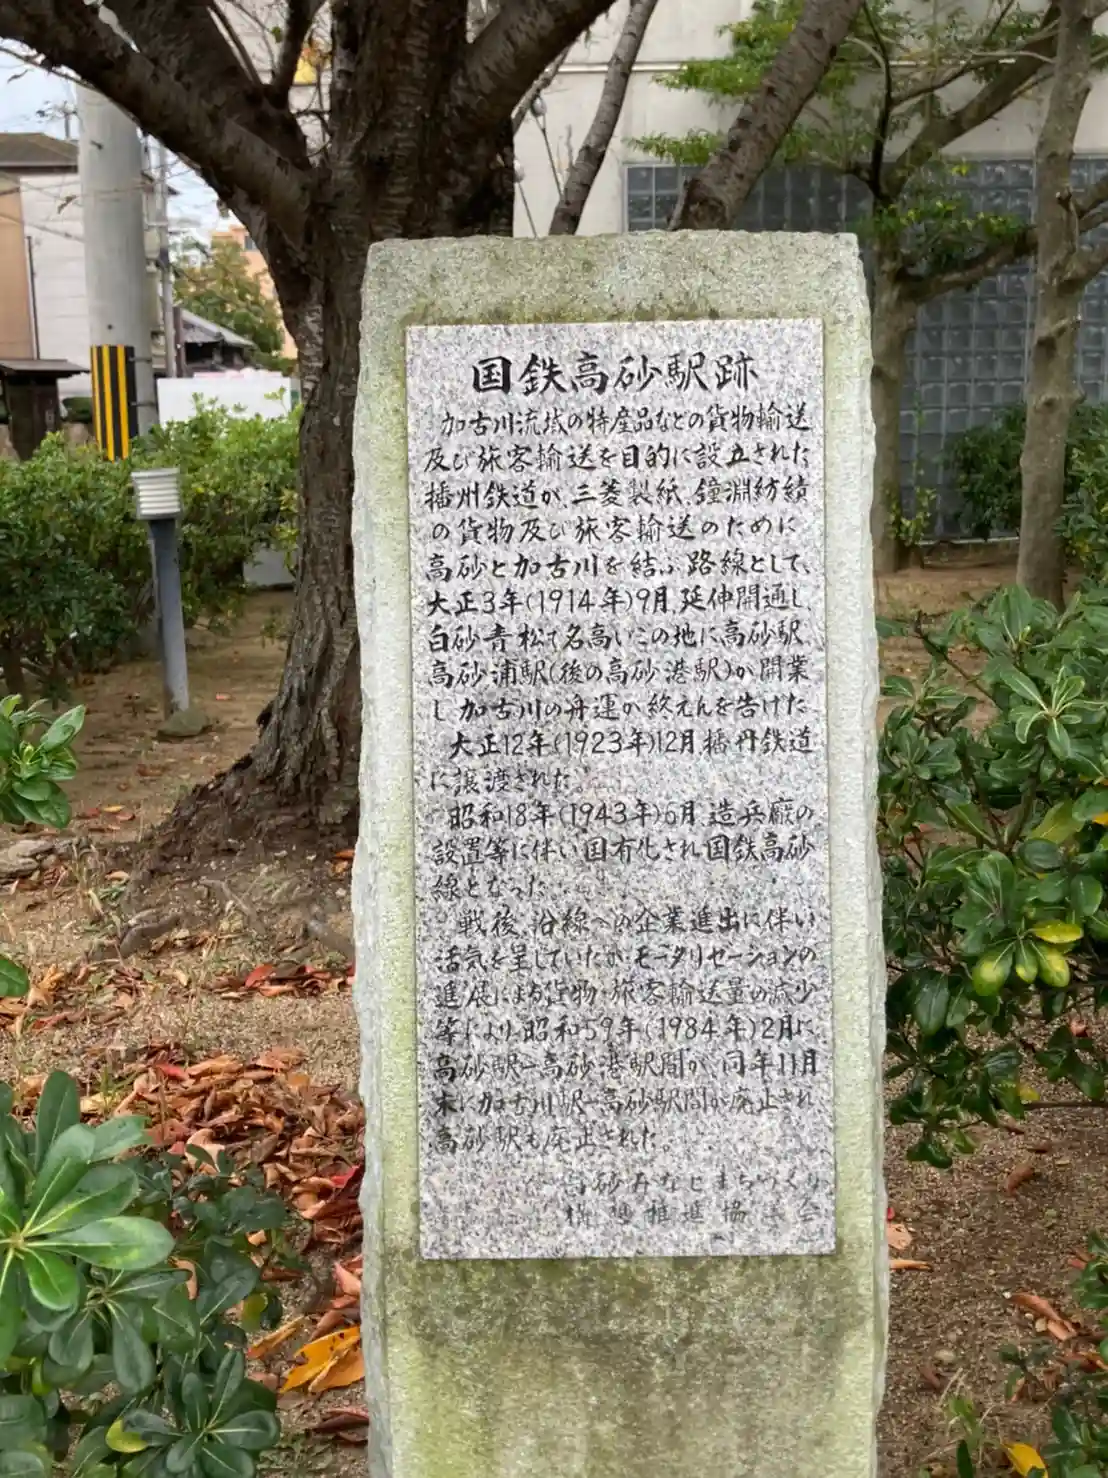 国鉄高砂駅跡
加古川流域の特産品などの貨物輸送
及び旅客輸送を目的に設立された
播州鉄道が、三菱製紙、鐘淵紡績
の貨物及び旅客輸送のために
高砂と加古川を結ぶ路線として、
大正3年(1914年)9月、延伸開通し、
白砂青松で名高いこの地に高砂駅、
高砂浦駅(後の高砂港駅)が開業
し加古川の舟運が終えんを告げた
大正12年(1923年)12月播丹鉄道
に譲渡された。
昭和18年(1943年)6月造兵廠の
設置等に伴い国有化され国鉄高砂
線となった
戦後、沿線への企業進出に伴い
活気を呈していたがモータリゼーションの
進展による貨物・旅客輸送量の減少
等により、昭和59年(1984年)2月に
高砂駅ー高砂港駅間が、同年11月
末に加古川駅ー高砂駅間が廃止され
高砂駅も廃止された。
砂みなとまちづくり
構想推進協 会